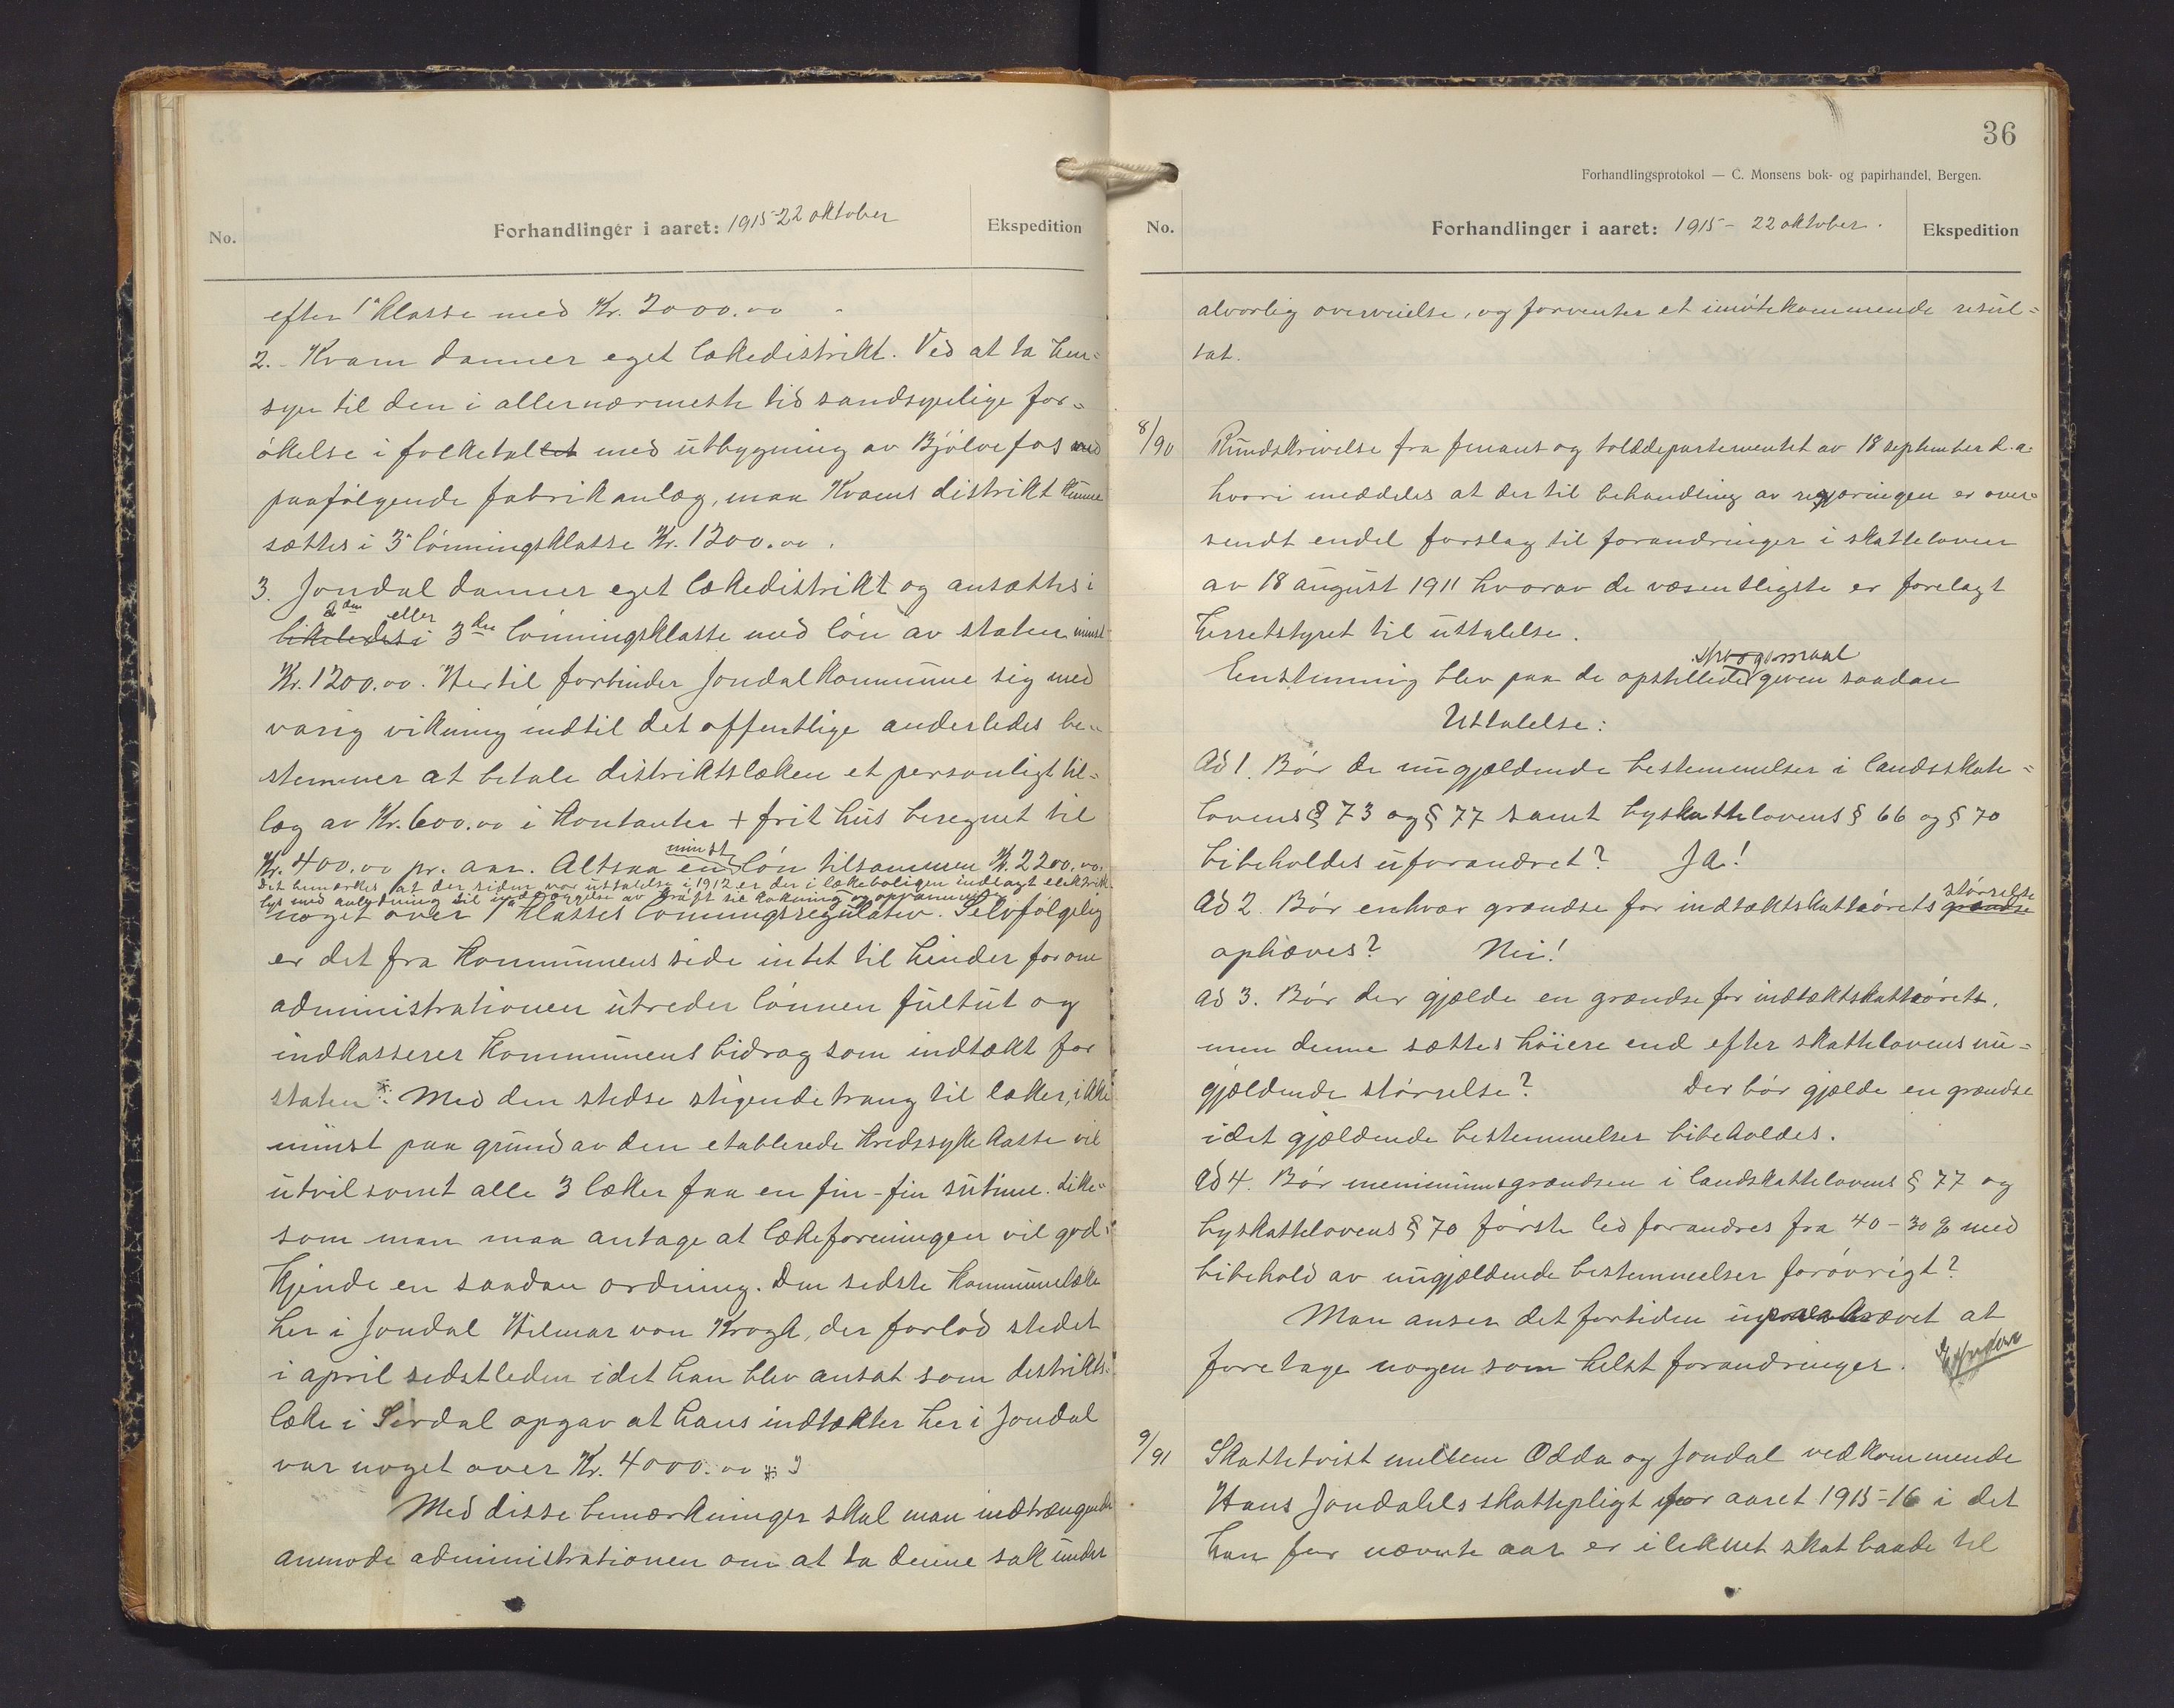 No.
Forhandlinger i aaret: 1915-22 oktober
Ekspedition
efter 1ª klasse med Kr. 2000.00
2.- Kvam danner eget lækedistrikt. Ved at ta hen-
syn til den i allernærmeste tid sandsynlige for-
økelse i folketallet med utbygning av Bjølvefos med
paafølgende fabrikanlæg, maa Kvams distrikt kunne
sættes i 3ª lønningsklasse Kr. 1200.00.
3. Jondal danner eget lækedistrikt og ansættes i
2den eller
likeledes i 3die lønningsklasse med løn av staten minst
Kr. 1200.00. Hertil forbinder Jondal kommune sig med
varig virkning indtil det offentlige anderledes be-
stemmer at betale distriktslæken et personligt til-
læg av Kr. 600.00 i kontanter + frit hus beregnet til
mindst
Kr. 400.00 pr. aar. Altsaa en løn tilsammen Kr. 2200.00.
Det bemærkes, at der siden vor uttalelse i 1912 er der i lækeboligen indlagt elektrisk
lys med anledning til kraft til kokning og opvarmning
noget over 1ª klasses lønningsregulativ. Selvfølgelig
er det fra kommunens side intet til hinder for om
administrationen utreder lønnen fultut og
indkasserer kommunens bidrag som indtækt for
staten. Med den stedse stigende trang til læker, ikke
minst paa grund av den etablerede kredssykekasse vil
utvilsomt alle 3 læker faa en fin-fin rutine. Like-
som man maa antage at lækeforeningen vil god-
kjende en saadan ordning. Den sidste kommunelæke
her i Jondal Hilmar von Krogh, der forlod stedet
i april sidstleden idet han blev ansat som distrikts-
læke i Sirdal opgav at hans indtækter her i Jondal
var noget over Kr. 4000.00
Med disse bemærkninger skal man indtrængende
anmode administrationen om at ta denne sak under
36
Forhandlingsprotokol — C. Monsens bok- og papirhandel, Bergen.
No.
Forhandlinger i aaret: 1915 - 22 oktober.
Ekspedition
alvorlig overveielse, og forventer et imøtekommende resul-
tat.
8/90 Rundskrivelse fra finans og tolddepartementet av 18 september d.a.
hvori meddeles at der til behandling av regjeringen er over-
sendt endel forslag til forandringer i skatteloven
av 18 august 1911 hvorav de væsentligste er forelagt
herretstyret til uttalelse.
spørgsmaal
Enstemmig blev paa de opstillede given saadan
Uttalelse:
Ad 1. Bør de nugjældende bestemmelser i landsskatte-
lovens § 73 og § 77 samt byskattelovens § 66 og § 70
bibeholdes uforandret? Ja!
størrelse
Ad 2. Bør enhver grændse for indtæktskattørets grændse
ophæves? Nei!
Ad 3. Bør der gjælde en grændse for indtæktskattøret,
men denne sættes høiere end efter skattelovens nu-
gjældende størrelse? Der bør gjælde en grændse
idet gjældende bestemmelser bibeholdes.
Ad 4. Bør menimumsgrændsen i landskattelovens § 77 og
byskattelovens § 70 første led forandres fra 40 - 30 % med
bibehold av nugjældende bestemmelser forøvrigt?
Man anser det fortiden upaakrævet at
foretage nogen som helst forandringer.
9/91 Skattetvist mellem Odda og Jondal vedkommende
Hans Jondals skattepligt for aaret 1915-16 i det
han for nævnte aar er ilignet skat baade til